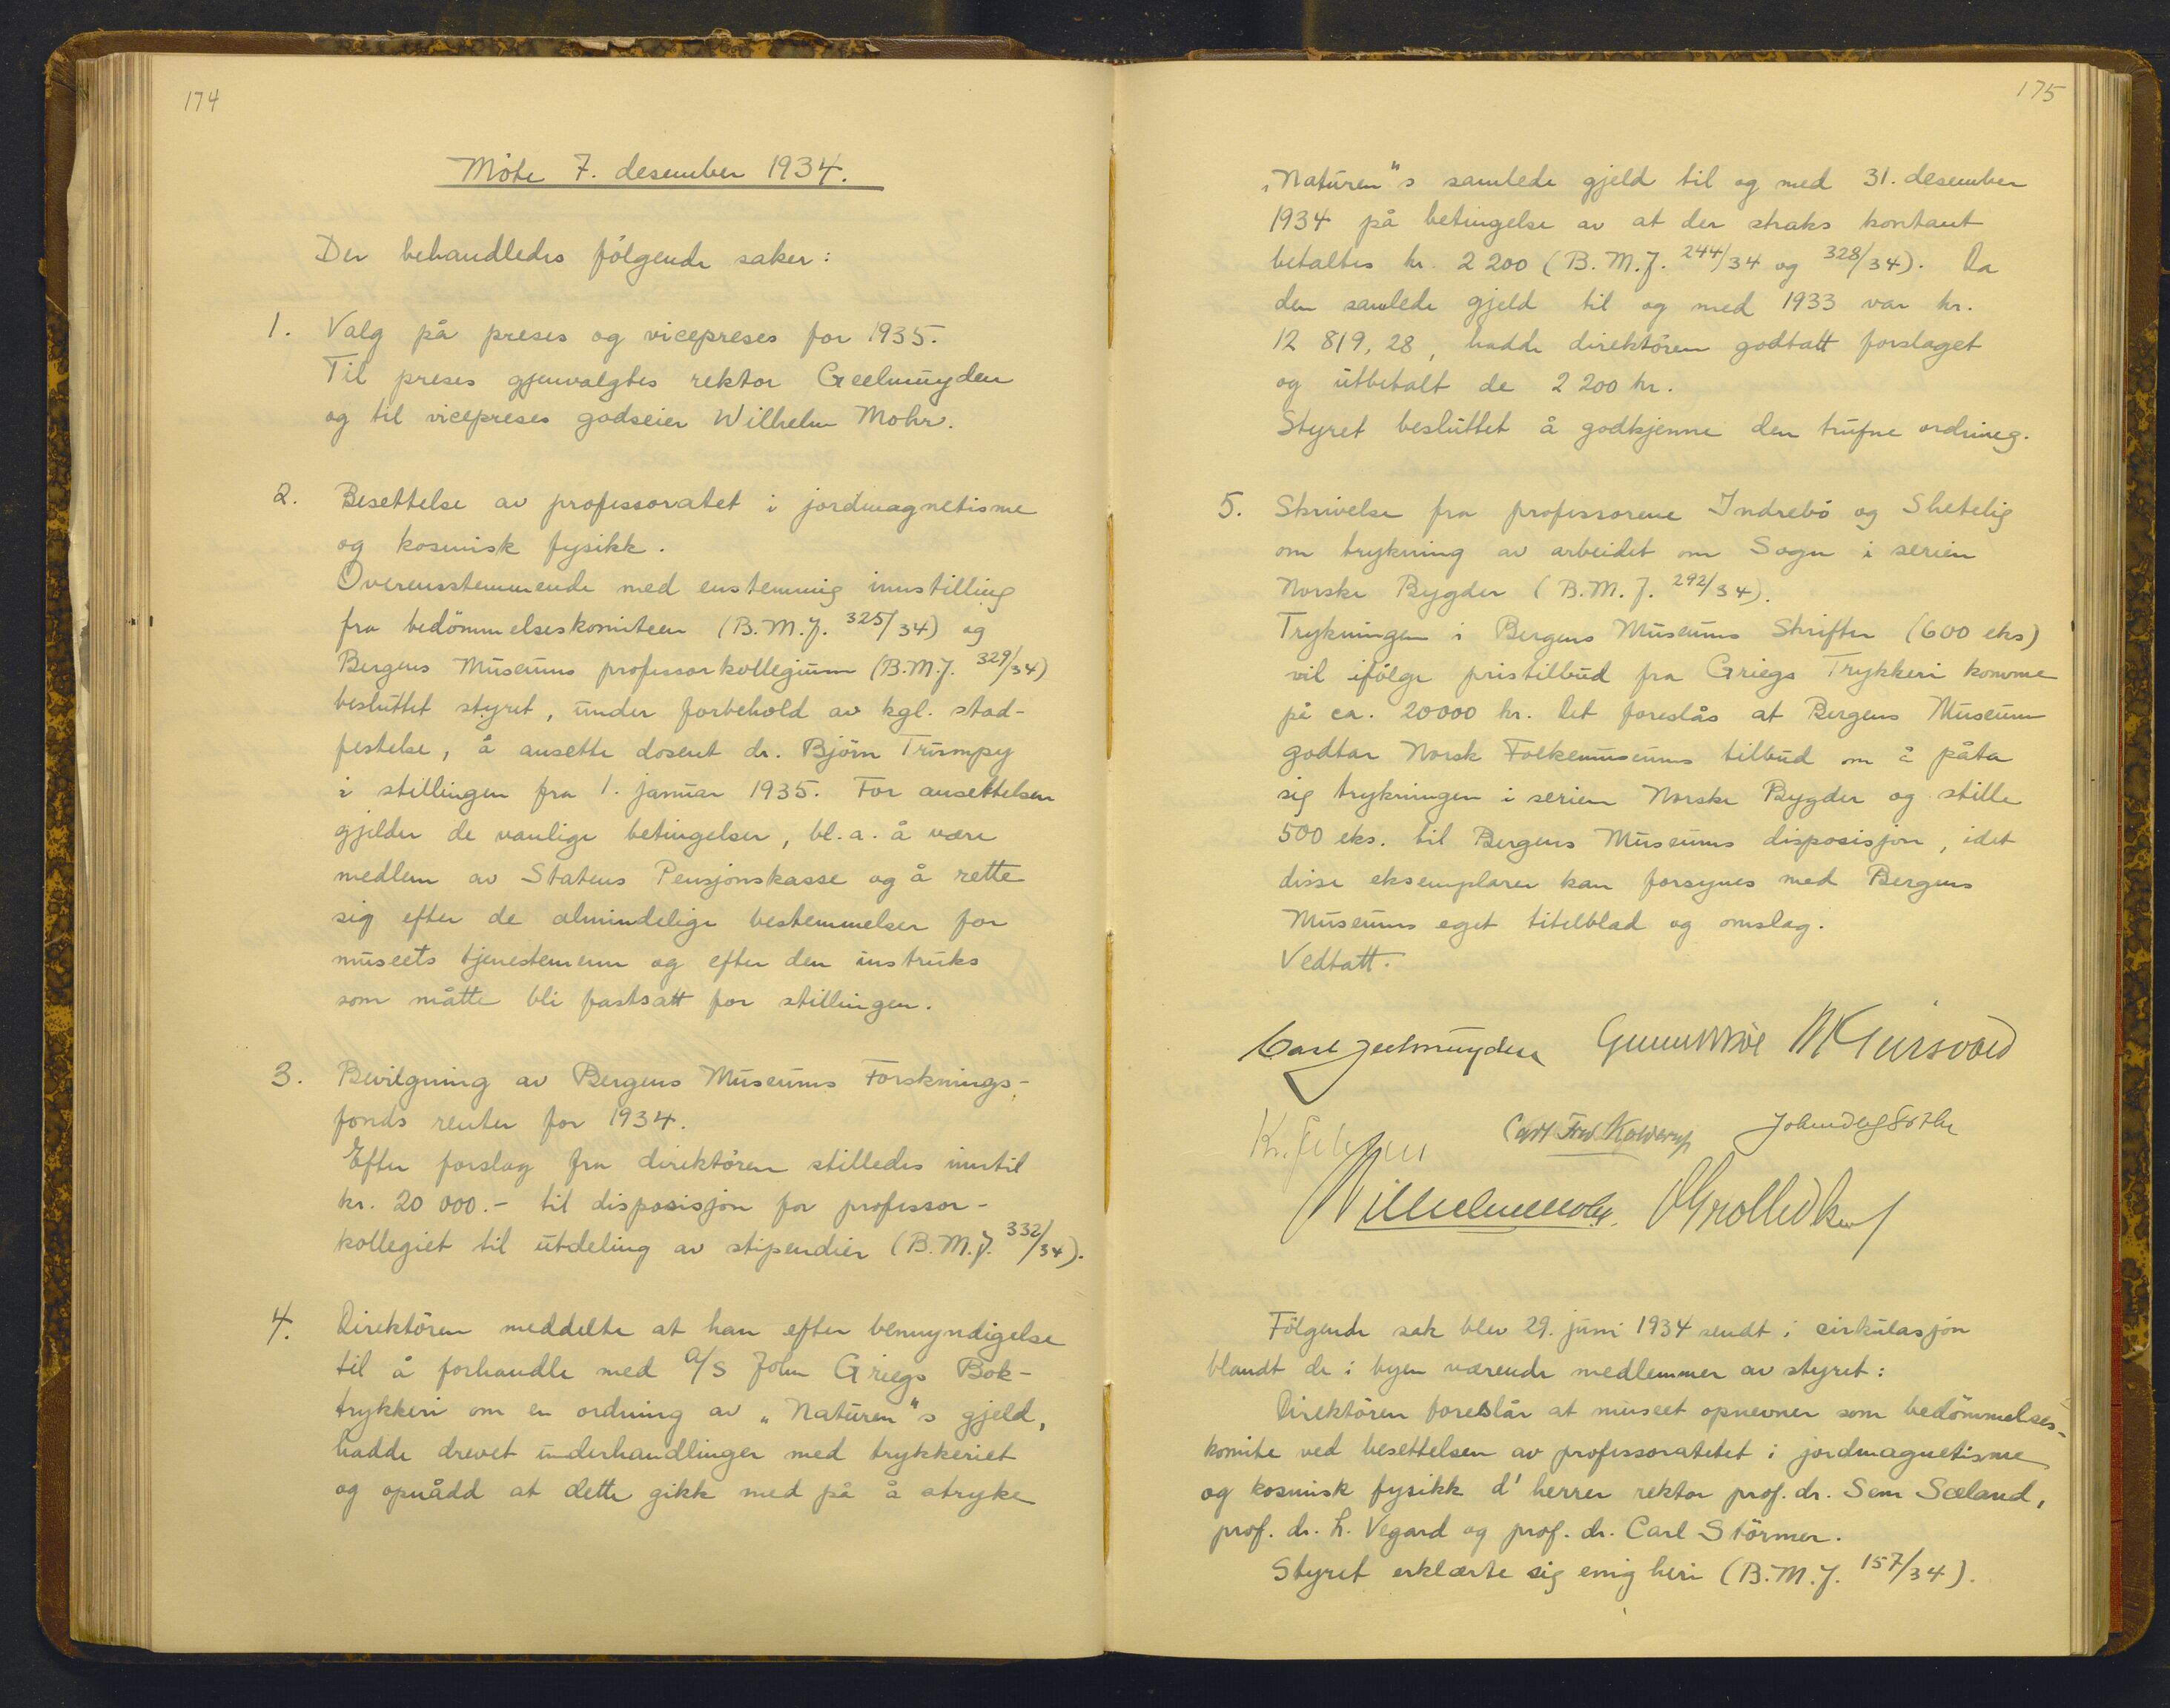 174
Möte 7. desember 1934.
Der behandledes fölgende saker:
1. Valg på preses og vicepreses for 1935.
Til preses gjenvalgtes rektor Geelmuyden
og til vicepreses godseier Wilhelm Mohr.
2. Besettelse av professoratet i jordmagnetisme
og kosmisk fysikk.
Overensstemmende med enstemmig innstilling
fra bedömmelseskomiteen (B.M.J. 325/34) og
Bergens Museums professorkollegium (B.M.J. 329/34)
besluttet styret, under forbehold av kgl. stad-
festelse, å ansette dosent dr. Björn Trumpy
i stillingen fra 1. januar 1935. For ansettelsen
gjelder de vanlige betingelser, bl.a. å være
medlem av Statens Pensjonskasse og å rette
sig efter de almindelige bestemmelser for
museets tjenestemenn og efter den instruks
som måtte bli fastsatt for stillingen.
3. Bevilgning av Bergens Museums Forsknings-
fonds renter for 1934.
Efter forslag fra direktören stilledes inntil
kr. 20 000.- til disposisjon for professor-
kollegiet til utdeling av stipendier (B.M.J. 332/34).
4. Direktören meddelte at han efter bemyndigelse
til å forhandle med A/S John Griegs Bok-
trykkeri om en ordning av „Naturen"s gjeld,
hadde drevet underhandlinger med trykkeriet
og opnådd at dette gikk med på å stryke
175
„Naturen"s samlede gjeld til og med 31. desember
1934 på betingelse av at der straks kontant
betaltes kr. 2 200 (B.M.J. 244/34 og 328/34). Da
den samlede gjeld til og med 1933 var kr.
12 819,28, hadde direktören godtatt forslaget
og utbetalt de 2 200 kr.
Styret besluttet å godkjenne den trufne ordning.
5. Skrivelse fra professorene Indrebö og Shetelig
om trykning av arbeidet om Sogn i serien
Norske Bygder (B.M.J. 292/34).
Trykningen i Bergens Museums Skrifter (600 eks)
vil ifölge pristilbud fra Griegs Trykkeri komme
på ca. 20000 kr. Det foreslås at Bergens Museum
godtar Norsk Folkemuseums tilbud om å påta
sig trykningen i serien Norske Bygder og stille
500 eks. til Bergens Museums disposisjon, idet
disse eksemplarer kan forsynes med Bergens
Museums eget titelblad og omslag.
Vedtatt.
Carl Geelmuyden
Carl Fred. Kolderup
Wilhelm Mohr.
Fölgende sak blev 29. juni 1934 sendt i cirkulasjon
blandt de i byen værende medlemmer av styret:
Direktören foreslår at museet opnevner som bedömmelses-
komite ved besettelsen av professoratetet i jordmagnetisme
og kosmisk fysikk d' herrer rektor prof. dr. Sem Sæland,
prof. dr. L. Vegard og prof. dr. Carl Störmer.
Styret erklærte sig enig heri (B.M.J. 157/34).